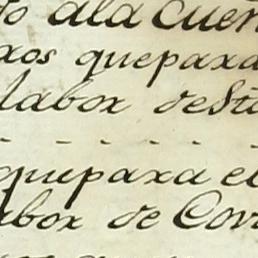 to ala Cuen
xos quepaxa
labox deSta
quepaxa el
abox de Cov